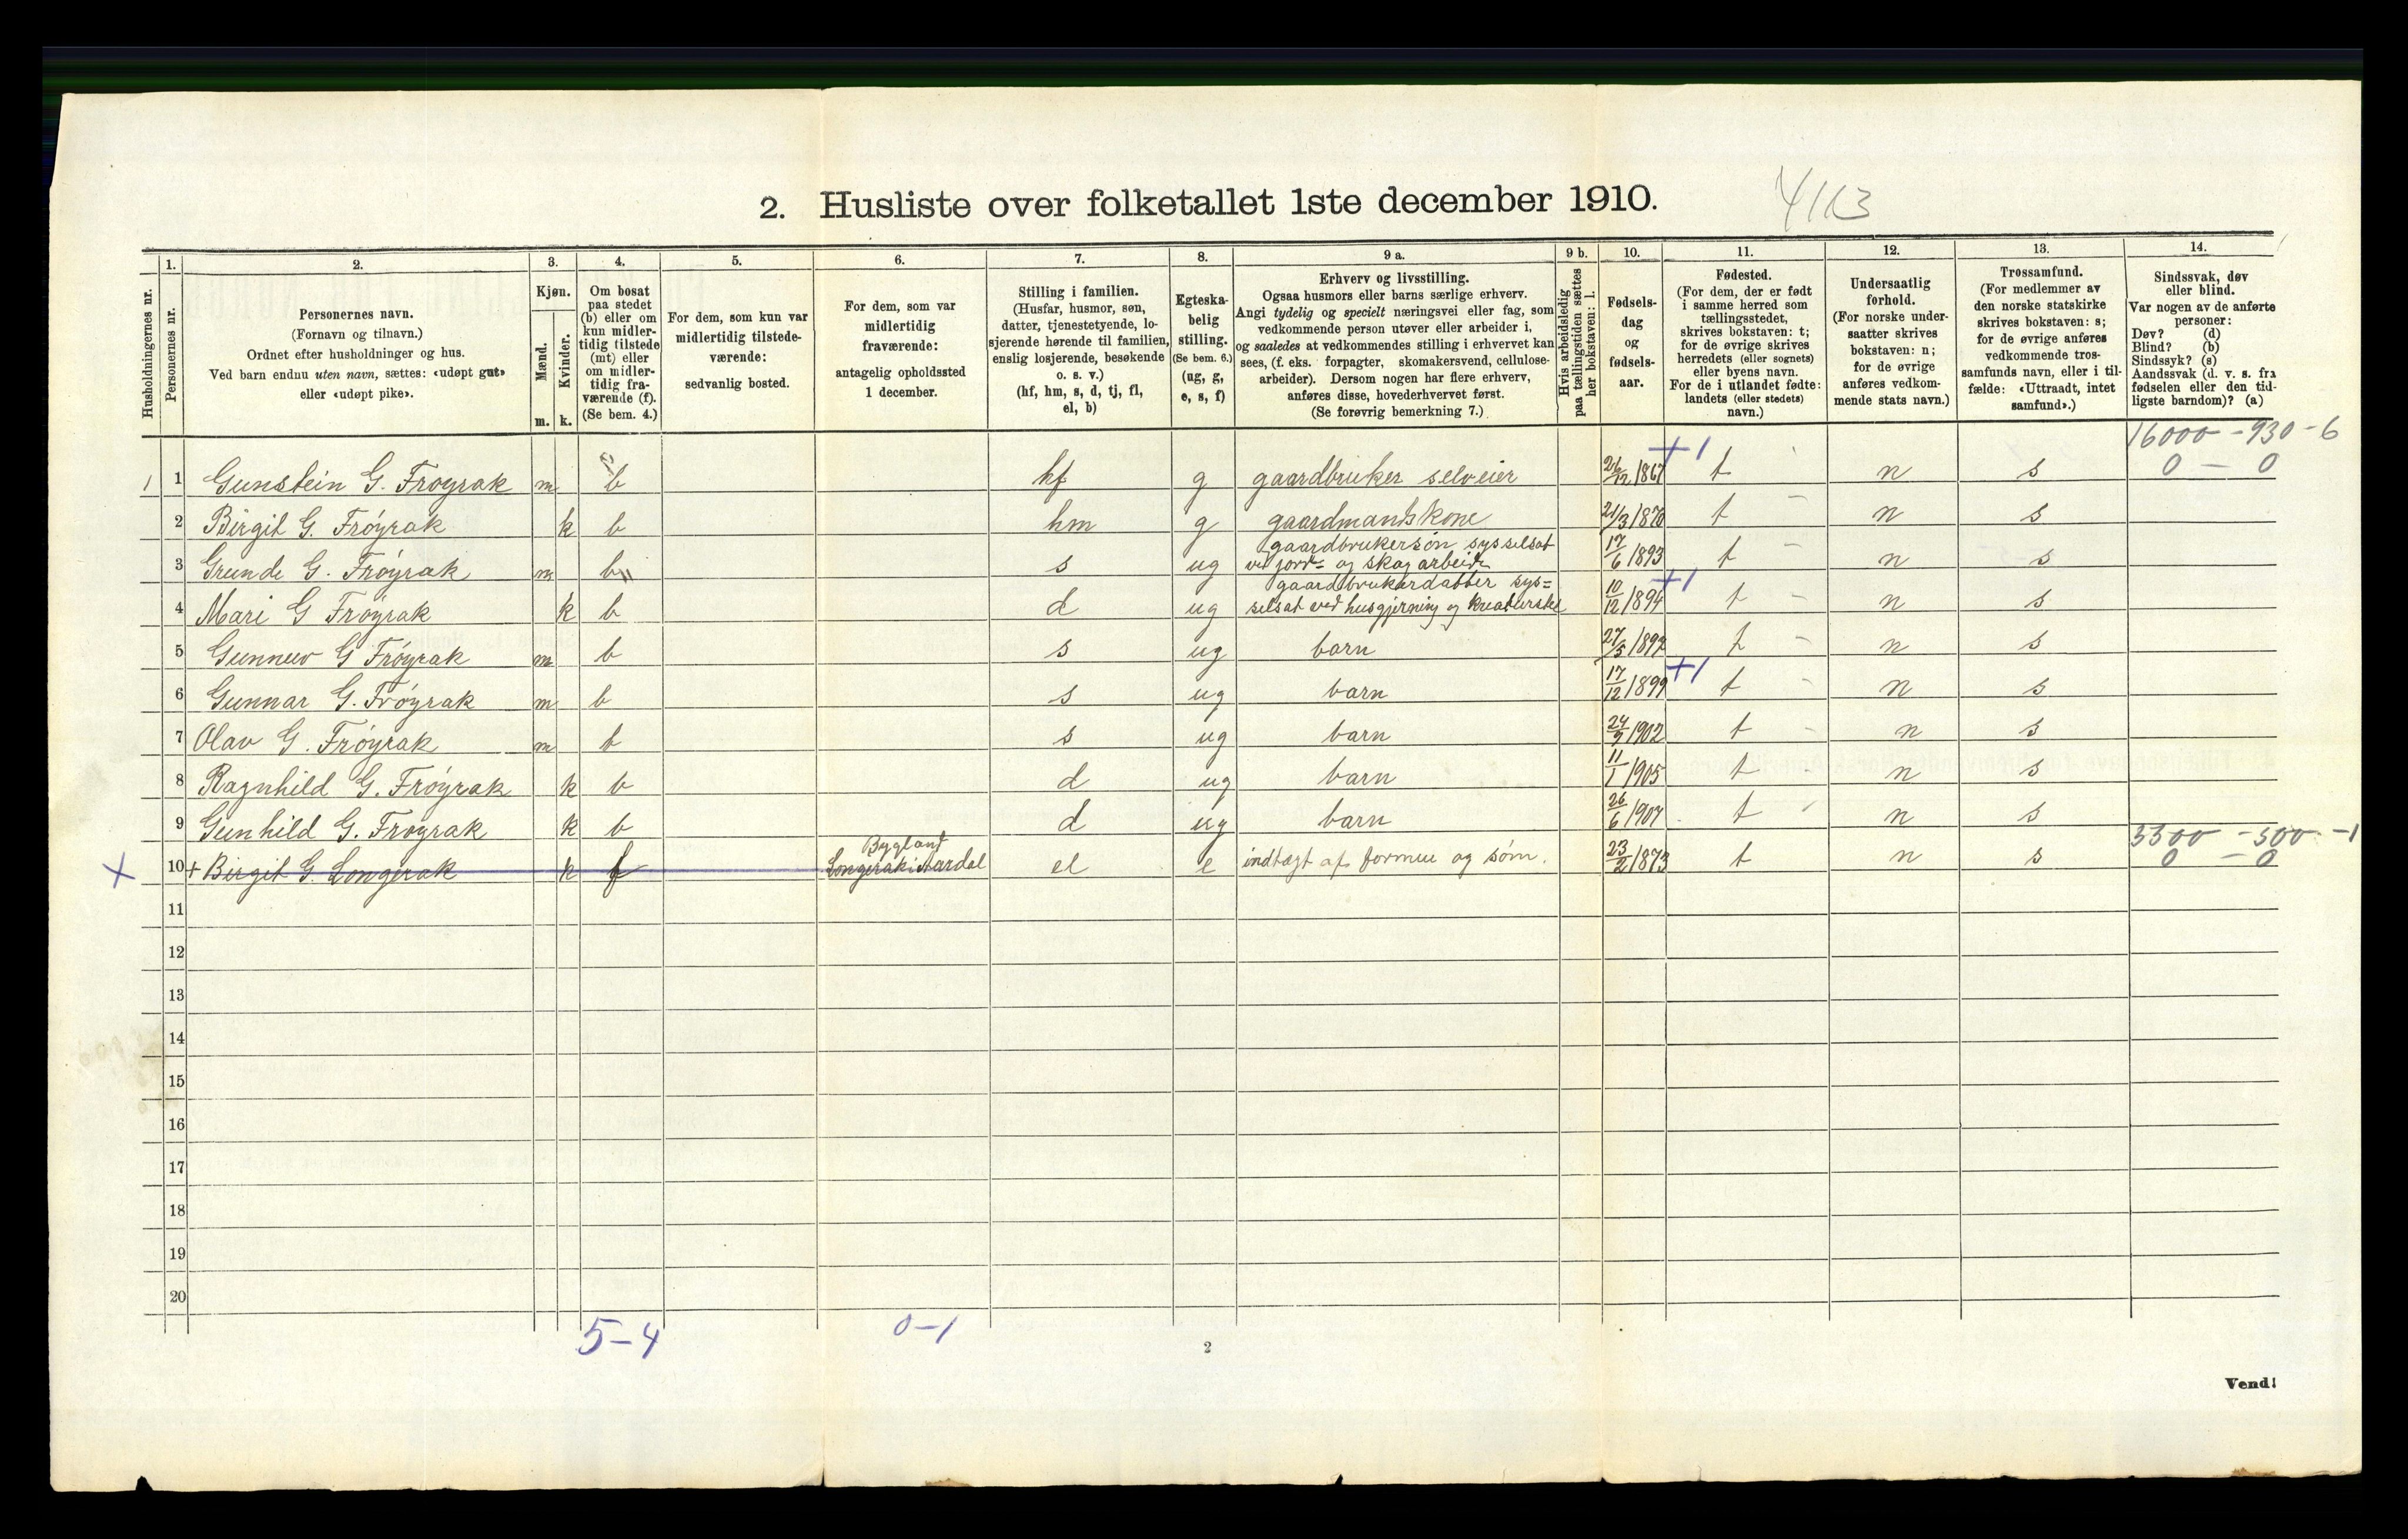 2. Husliste over folketallet 1ste december 1910.
Husholdningernes nr.
1.
Personernes nr.
2.
Personernes navn.
(Fornavn og tilnavn.)
Ordnet efter husholdninger og hus.
Ved barn endnu uten navn, sættes: «udøpt gut»
eller «udøpt pike».
3.
Kjøn.
Mænd.
Kvinder.
m. k.
4.
Om bosat
paa stedet
(b) eller om
kun midler-
tidig tilstede
(mt) eller
om midler-
tidig fra-
værende (f).
(Se bem. 4.)
5.
For dem, som kun var
midlertidig tilstede-
værende:
sedvanlig bosted.
6.
For dem, som var
midlertidig
fraværende:
antagelig opholdssted
1 december.
7.
Stilling i familien.
(Husfar, husmor, søn,
datter, tjenestetyende, lo-
sjerende hørende til familien,
enslig losjerende, besøkende
o. s. v.)
(hf, hm, s, d, tj, fl,
el, b)
8.
Egteska-
belig
stilling.
(Se bem. 6.)
(ug, g,
e, s, f)
9 a.
Erhverv og livsstilling.
Ogsaa husmors eller barns særlige erhverv.
Angi tydelig og specielt næringsvei eller fag, som
vedkommende person utøver eller arbeider i,
og saaledes at vedkommendes stilling i erhvervet kan
sees, (f. eks. forpagter, skomakersvend, cellulose-
arbeider). Dersom nogen har flere erhverv,
anføres disse, hovederhvervet først.
(Se forøvrig bemerkning 7.)
9 b.
Hvis arbeidsledig
paa tællingstiden sættes
her bokstaven: l.
10.
Fødsels-
dag
og
fødsels-
aar.
11.
Fødested.
(For dem, der er født
i samme herred som
tællingsstedet,
skrives bokstaven: t;
for de øvrige skrives
herredets (eller sognets)
eller byens navn.
For de i utlandet fødte:
landets (eller stedets)
navn.)
12.
Undersaatlig
forhold.
(For norske under-
saatter skrives
bokstaven: n;
for de øvrige
anføres vedkom-
mende stats navn.)
13.
Trossamfund.
(For medlemmer av
den norske statskirke
skrives bokstaven: s;
for de øvrige anføres
vedkommende tros-
samfunds navn, eller i til-
fælde: «Uttraadt, intet
samfund».)
14.
Sindssvak, døv
eller blind.
Var nogen av de anførte
personer:
Døv? (d)
Blind? (b)
Sindssyk? (s)
Aandssvak (d. v. s. fra
fødselen eller den tid-
ligste barndom)? (a)
16000 - 930 - 6
1 1 Gunstein G. Frøyrak m b hf g gaardbruker selveier 26/12 1867 +1 t n s 0 - 0
2 Birgit G. Frøyrak k b hm g gaardmandskone 21/3 1870 t n s
3 Grunde G. Frøyrak m b s ug gaardbrukersøn sysselsat
ved jord= og skogarbeide 17/6 1893 t n s
4 Mari G Frøyrak k b d ug gaardbrukerdatter sys=
selsat ved husgjerning og kreaturstel 10/12 1894 +1 t n s
5 Gunnuv G Frøyrak m b s ug barn 27/5 1897 t n s
6 Gunnar G. Frøyrak m b s ug barn 17/12 1899 +1 t n s
7 Olav G. Frøyrak m b s ug barn 24/9 1902 t n s
8 Ragnhild G. Frøyrak k b d ug barn 11/1 1905 t n s
9 Gunhild G. Frøyrak k b d ug barn 26/6 1907 t n s
3300 - 500 - 1
X 10 + Birgit G. Longerak k f Bygland
Longerak i Aardal el e indtægt af formue og søm. 23/2 1873 t n s 0 - 0
11
12
13
14
15
16
17
18
19
20
5-4
0-1
2
Vend!